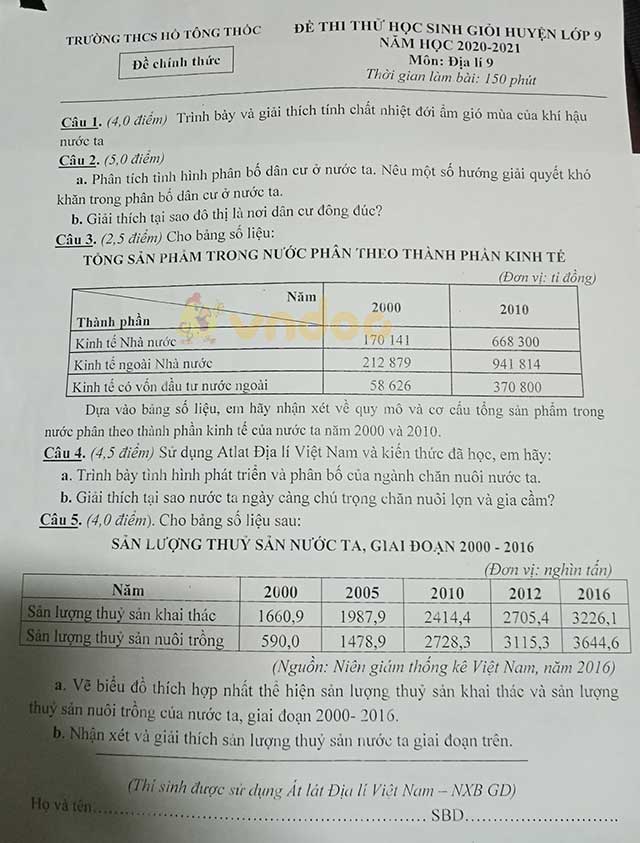 TRƯỜNG THCS HỒ TÔNG THỐC
ĐỀ THI THỬ HỌC SINH GIỎI HUYỆN LỚP 9
NĂM HỌC 2020-2021
Đề chính thức
Môn: Địa lí 9
Thời gian làm bài: 150 phút
Câu 1. (4,0 điểm) Trình bày và giải thích tính chất nhiệt đới ẩm gió mùa của khí hậu
nước ta
Câu 2. (5,0 điểm)
a. Phân tích tình hình phân bố dân cư ở nước ta. Nêu một số hướng giải quyết khó
khăn trong phân bố dân cư ở nước ta.
b. Giải thích tại sao đô thị là nơi dân cư đông đúc?
Câu 3. (2,5 điểm) Cho bảng số liệu:
TỔNG SẢN PHẨM TRONG NƯỚC PHÂN THEO THÀNH PHẦN KINH TẾ
(Đơn vị: tỉ đồng)
Năm 2000 2010
Thành phần
Kinh tế Nhà nước 170 141 668 300
Kinh tế ngoài Nhà nước 212 879 941 814
Kinh tế có vốn đầu tư nước ngoài 58 626 370 800
vndoc
Dựa vào bảng số liệu, em hãy nhận xét về quy mô và cơ cấu tổng sản phẩm trong
nước phân theo thành phần kinh tế của nước ta năm 2000 và 2010.
Câu 4. (4,5 điểm) Sử dụng Atlat Địa lí Việt Nam và kiến thức đã học, em hãy:
a. Trình bày tình hình phát triển và phân bố của ngành chăn nuôi nước ta.
b. Giải thích tại sao nước ta ngày càng chú trọng chăn nuôi lợn và gia cầm?
Câu 5. (4,0 điểm). Cho bảng số liệu sau:
SẢN LƯỢNG THUỶ SẢN NƯỚC TA, GIAI ĐOẠN 2000 - 2016
(Đơn vị: nghìn tấn)
Năm 2000 2005 2010 2012 2016
Sản lượng thuỷ sản khai thác 1660,9 1987,9 2414,4 2705,4 3226,1
Sản lượng thuỷ sản nuôi trồng 590,0 1478,9 2728,3 3115,3 3644,6
(Nguồn: Niên giám thống kê Việt Nam, năm 2016)
a. Vẽ biểu đồ thích hợp nhất thể hiện sản lượng thuỷ sản khai thác và sản lượng
thuỷ sản nuôi trồng của nước ta, giai đoạn 2000- 2016.
b. Nhận xét và giải thích sản lượng thuỷ sản nước ta giai đoạn trên.
(Thí sinh được sử dụng Át lát Địa lí Việt Nam – NXB GD)
Họ và tên.................................................. SBD.........................